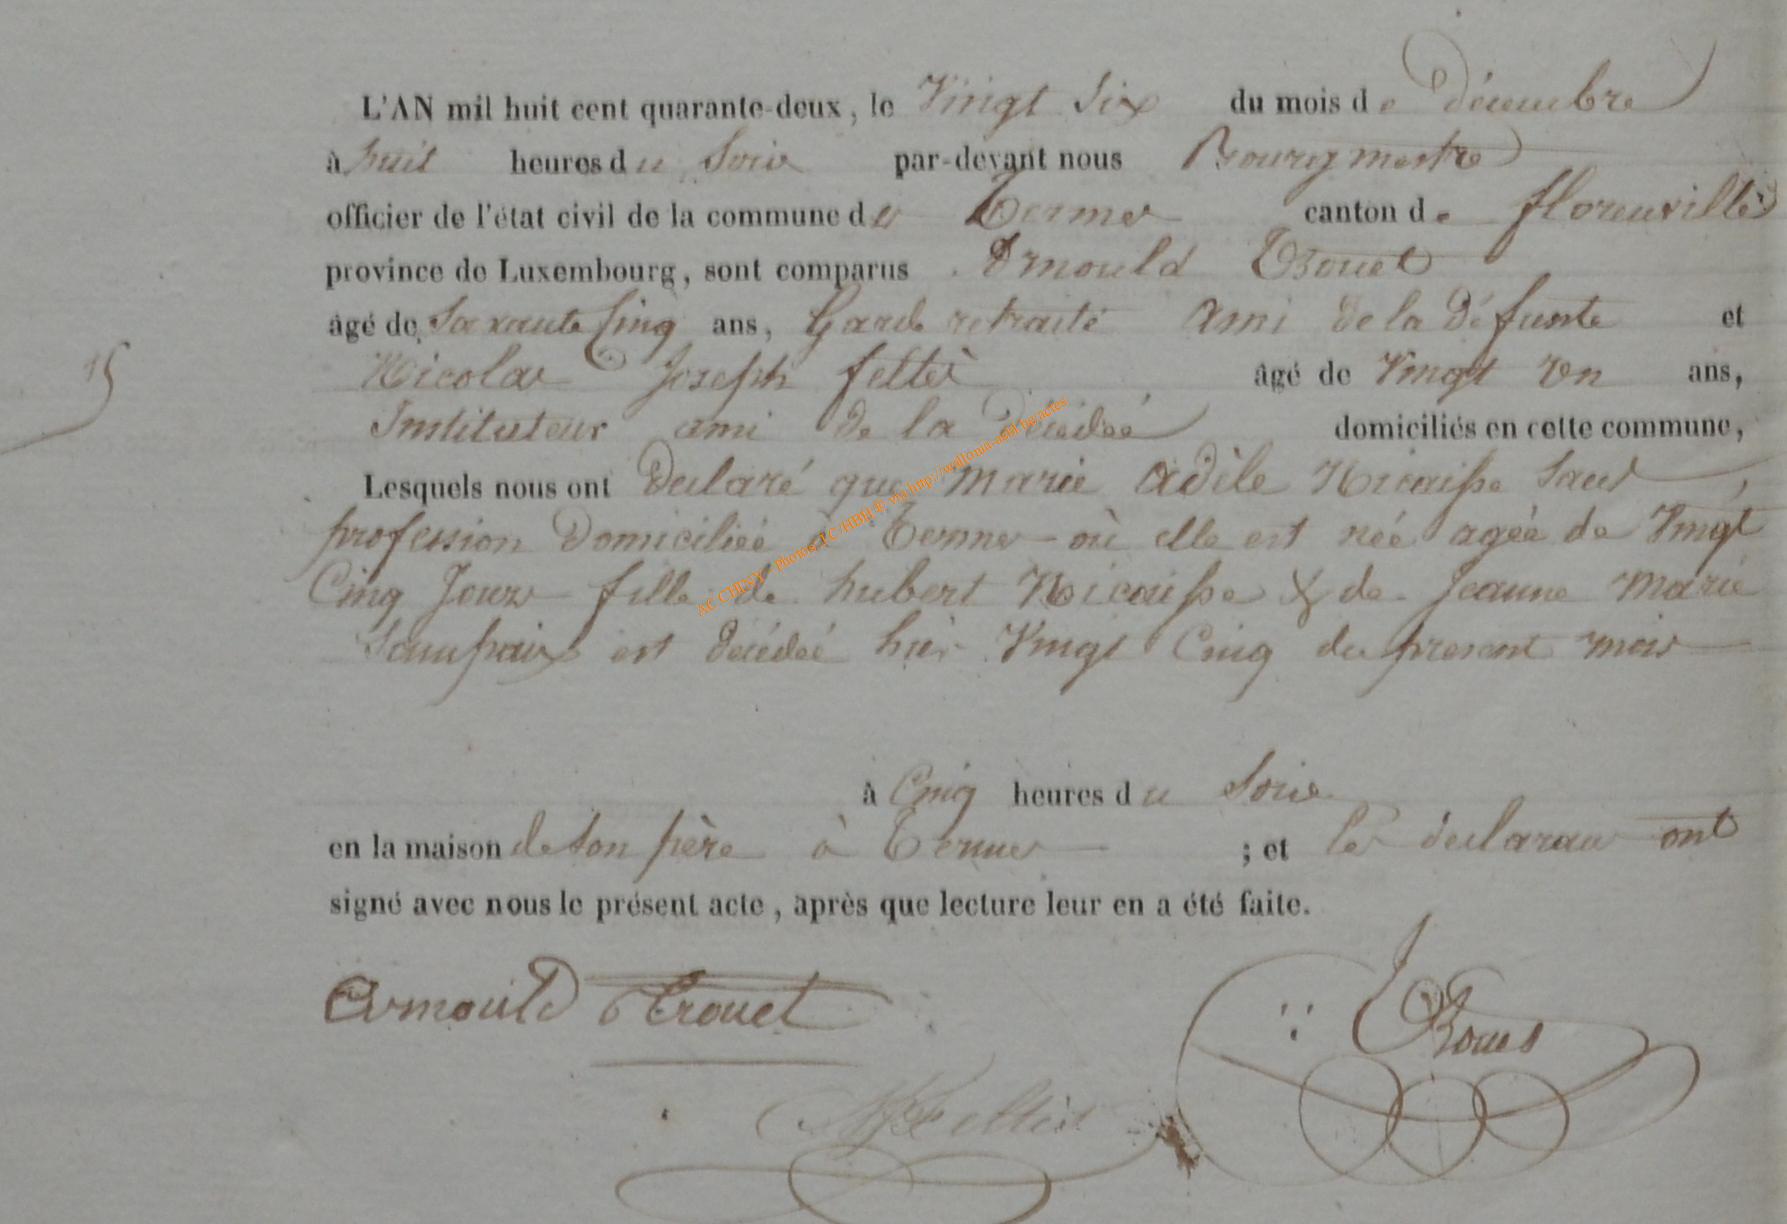 L'AN mil huit cent quarante-deux, le Vingt Six du mois de décembre
à huit heures du Soir par-devant nous Bourgmestre
officier de l'état civil de la commune de Termes canton de florenville
province de Luxembourg, sont comparus Arnould Trouet
âgé de Soixante Cinq ans, Garde retraité Ami de la défunte et
Nicolas Joseph feltés âgé de Vingt un ans,
Instituteur ami de la décédeé domiciliés en cette commune,
15
Lesquels nous ont déclaré que Marie Adèle Nicaisse Sans
profession domiciliéé à Termes où elle est née agéé de Vingt
Cinq Jours fille de hubert Nicaisse & de Jeanne Marie
est décédeé hier Vingt Cinq du present mois
à Cinq heures du Soir
en la maison de son père à Termes ; et les déclarans ont
signé avec nous le présent acte, après que lecture leur en a été faite.
Arnould Trouet
AC CHINY - Photos TC/HBILP via http://wallonia-asbl.be/actes